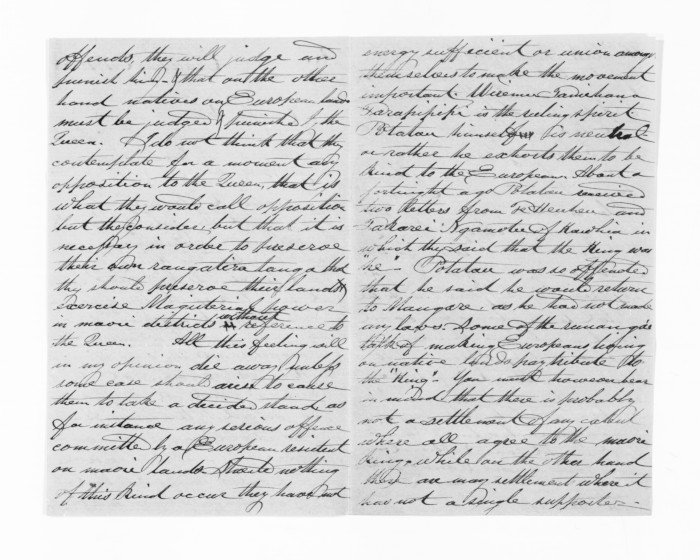 offends, they will judge and
punish him & that on the other
hand natives on European lands
must be judged & punished by the
Queen. I do not think that they
contemplate for a moment any
opposition to the Queen, that is
what they would call opposition
but they consider but that it is
necessary in order to preserve
their own rangatiratanga that
they should preserve their lands &
exercise Magisterial power
in maori districts without reference to
the Queen. All this feeling will
in my opinion die away, unless
some case should arise to cause
them to take a decided stand as
for instance any serious offence
committed by a European resident
on maori lands. Should nothing
of this kind occur they have not
energy sufficient or union among
themselves to make the movement
important. Wiremu Tamihana
Tarapipipi is the ruling spirit.
Potatau himself is neutral
or rather he exhorts them to be
kind to the European. About a
fortnight ago Potatau received
two letters from Te Heuheu and
Takarei Ngamotu of Kawhia in
which they said that the King was
"he". Potatau was so offended
that he said he would return
to Mangare as he had not made
any laws. Some of the runangas
talk of making Europeans living
on native lands pay tribute to
the "King". You must however bear
in mind that there is probably
not a settlement of any extent
where all agree to the maori
King, while on the other hand
there are many settlements where it
has not a single supporter.